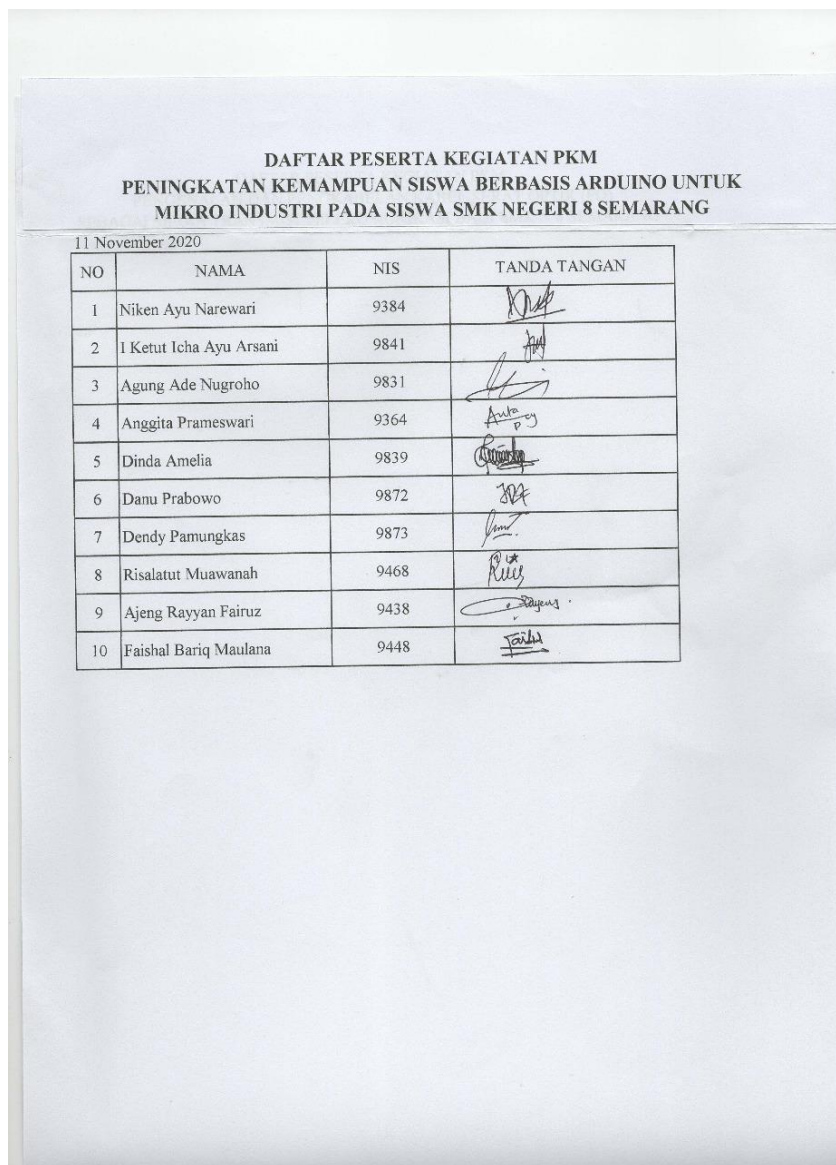 DAFTAR PESERTA KEGIATAN PKM
PENINGKATAN KEMAMPUAN SISWA BERBASIS ARDUINO UNTUK
MIKRO INDUSTRI PADA SISWA SMK NEGERI 8 SEMARANG
11 November 2020
NO NAMA NIS TANDA TANGAN
1 Niken Ayu Narewari 9384
2 I Ketut Icha Ayu Arsani 9841
3 Agung Ade Nugroho 9831
4 Anggita Prameswari 9364
5 Dinda Amelia 9839
6 Danu Prabowo 9872
7 Dendy Pamungkas 9873
8 Risalatut Muawanah 9468
9 Ajeng Rayyan Fairuz 9438
10 Faishal Bariq Maulana 9448